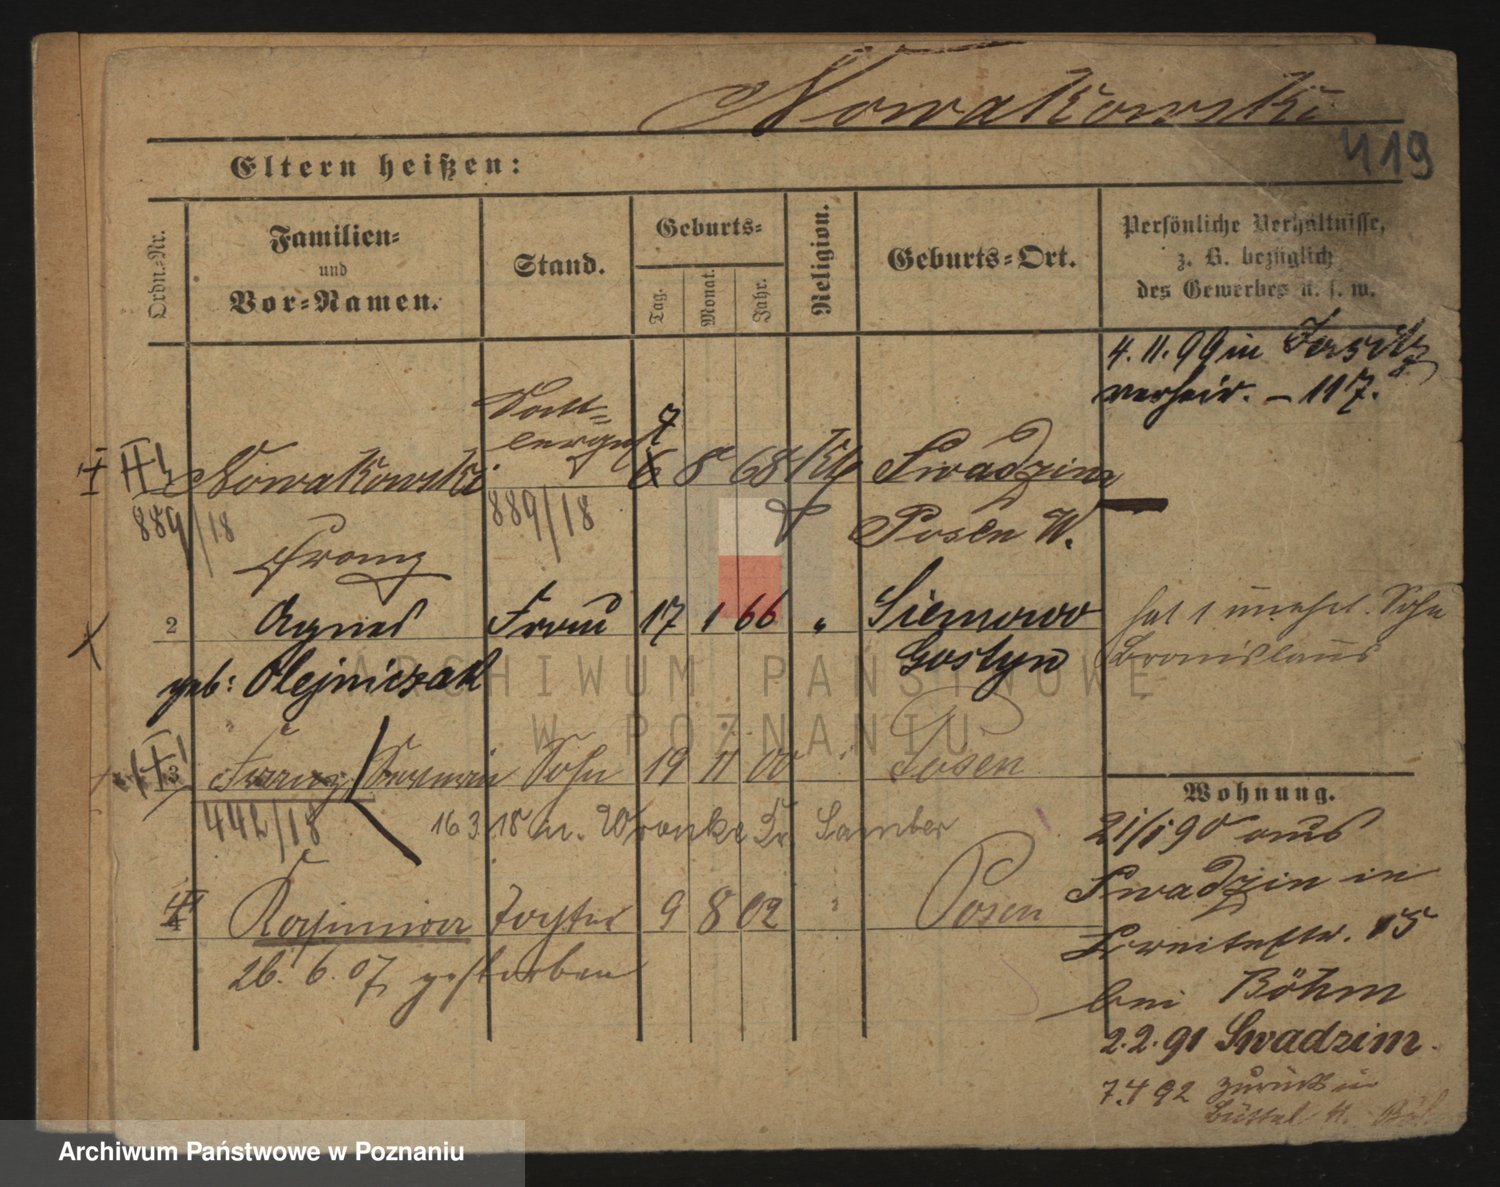 Nowakowski
419
Eltern heißen:
Ordn.-Nr.
Familien-
und
Vor-Namen.
Stand.
Geburts-
Tag.
Monat.
Jahr.
Religion.
Geburts-Ort.
Persönliche Verhältnisse,
z. B. bezüglich
des Gewerbes u. s. w.
4. 11. 99 in Jersitz
verheir. – 117.
7
Nowakowski 6 8 68 Kth Swadzim
889/18 889/18 Posen W.
Franz
2 Agnes Frau 17 1 66 " Siemowo
geb: Olejniczak Gostyn
hat 1 unehel. Sohn
Bronislaus
3 Franz Severin Sohn 19 11 00 " Posen
442/18 16 3. 18 n. Wronke Kr Samter
4 Kasimira Tochter 9 8 02 " Posen
26. 6. 07 gestorben
Wohnung.
21/1 90 aus
Swadzin in
Breitestr. 15
bei Böhm
2. 2. 91 Swadzim.
7. 4 92 zurück in
ARCHIWUM PAŃSTWOWE
W POZNANIU
Archiwum Państwowe w Poznaniu